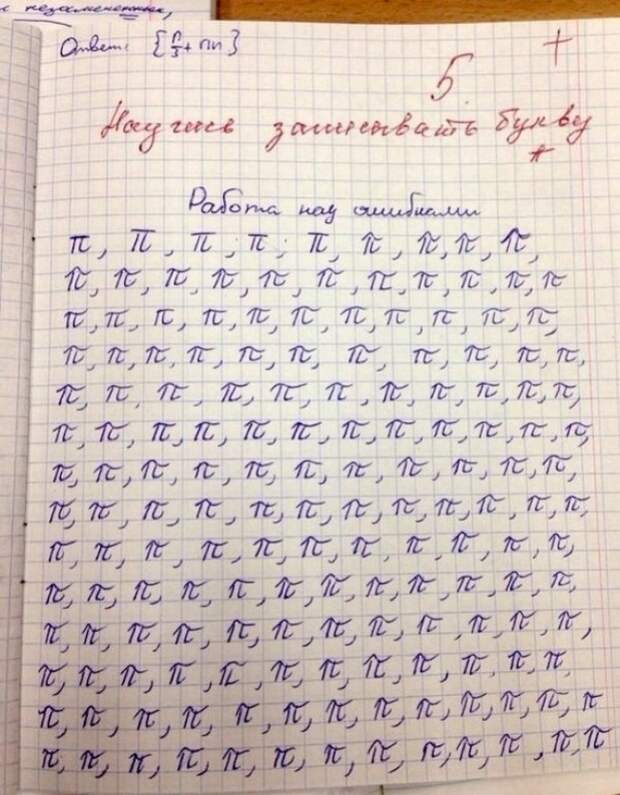 Ответ: {п/3 + пn}
5 +
Научись записывать букву
π
Работа над ошибками
π, π, π, π, π, π, π, π, π,
π, π, π, π, π, π, π, π, π, π, π
π, π, π, π, π, π, π, π, π, π, π,
π, π, π, π, π, π, π, π, π, π, π,
π, π, π, π, π, π, π, π, π, π, π,
π, π, π, π, π, π, π, π, π, π, π, π,
π, π, π, π, π, π, π, π, π, π, π,
π, π, π, π, π, π, π, π, π, π, π, π,
π, π, π, π, π, π, π, π, π, π, π,
π, π, π, π, π, π, π, π, π, π, π, π,
π, π, π, π, π, π, π, π, π, π, π, π,
π, π, π, π, π, π, π, π, π, π, π, π
π, π, π, π, π, π, π, π, π, π, π, π, π
π, π, π, π, π, π, π, π, π, π, π, π, π